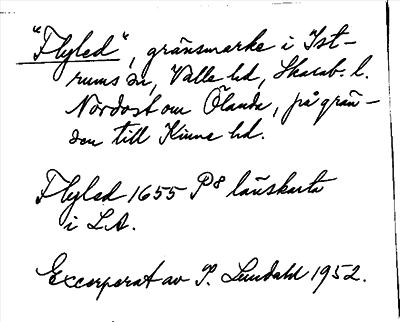 "Flyled", gränsmerke i Ist-
rums sn, Valle hd, Skarab. l.
Nordost om Ölanda, på grän-
sen till Kinne hd.
Flyled 1655 P8 länskarta
i LA.
Excerperat av P. Lundahl 1952.